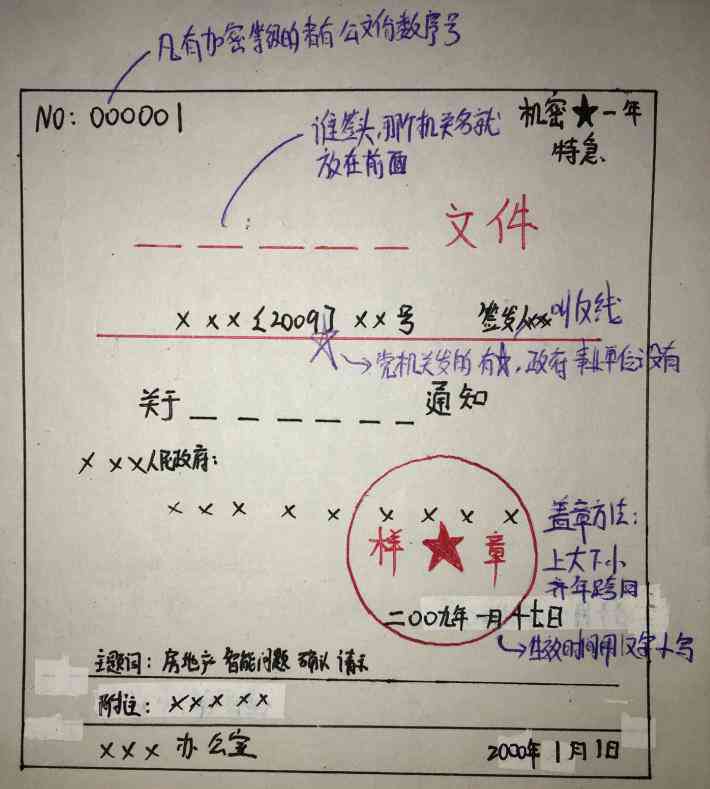 凡有加密等级的都有公文份数序号
NO: 000001
机密★一年
特急
谁牵头,那个机关名就
放在前面
_ _ _ _ _ 文件
X X X〔2009〕XX号
签发人XX
叫反线
党机关发的有★,政府事业单位没有
关于_ _ _ _ _ _通知
X X X人民政府:
X X X X X X X X X
样★章
盖章方法:
上大下小
齐年跨月
二00九年一月十七日
生效时间用汉字小写
主题词: 房地产 智能问题 确认 请示
附注: XXXXX
XXX办公室
2000年1月1日